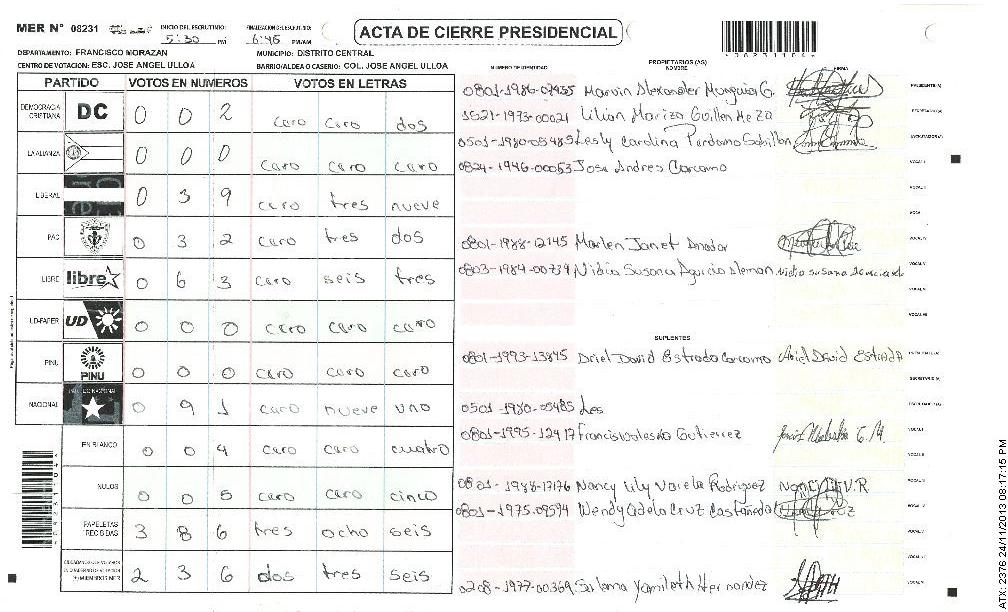 MER Nº 08231 INICIO DEL ESCRUTINIO: 5:30 PM FINALIZACION DEL ESCRUTINIO: 6:45 PM/AM ACTA DE CIERRE PRESIDENCIAL
DEPARTAMENTO: FRANCISCO MORAZAN MUNICIPIO: DISTRITO CENTRAL
CENTRO DE VOTACION: ESC. JOSE ANGEL ULLOA BARRIO/ALDEA O CASERIO: COL. JOSE ANGEL ULLOA
PARTIDO VOTOS EN NUMEROS VOTOS EN LETRAS
DEMOCRACIA CRISTIANA DC 0 0 2 cero cero dos
LA ALIANZA 0 0 0 cero cero cero
LIBERAL 0 3 9 cero tres nueve
PAC 0 3 2 cero tres dos
LIBRE libre 0 6 3 cero seis tres
UD-FAPER UD 0 0 0 cero cero cero
PINU PINU 0 0 0 cero cero cero
NACIONAL 0 9 1 cero nueve uno
EN BLANCO 0 0 4 cero cero cuatro
NULOS 0 0 5 cero cero cinco
PAPELETAS RECIBIDAS 3 8 6 tres ocho seis
2 3 6 dos tres seis
NUMERO DE IDENTIDAD PROPIETARIOS (AS) NOMBRE FIRMA
Marvin Alexander Munguia G. PRESIDENTE(A)
1521-1973-00021 Lilian Mariza Guillen Meza SECRETARIO(A)
0501-1980-05485 Lesly Carolina Perdomo
0824-1946-00053 Jose Andres Carcamo VOCAL I
0801-1988-12145 Marlen Janet Amador
0803-1984-00734 Nidia Susana
SUPLENTES
0801-1993-13845 Ariel David Estrada Carcamo Ariel David Estrada
0501-1980-05485 Les
0801-1995-12417 Francis Gutierrez
0801-1988-17176 Nancy Lily Varela Rodriguez Nancy V.R
0801-1975-09594 Wendy Adela Cruz Castañeda
0208-1977-00369 Salama Yamileth Hernandez
ATX-2376 24/11/2013 08:17:15 PM